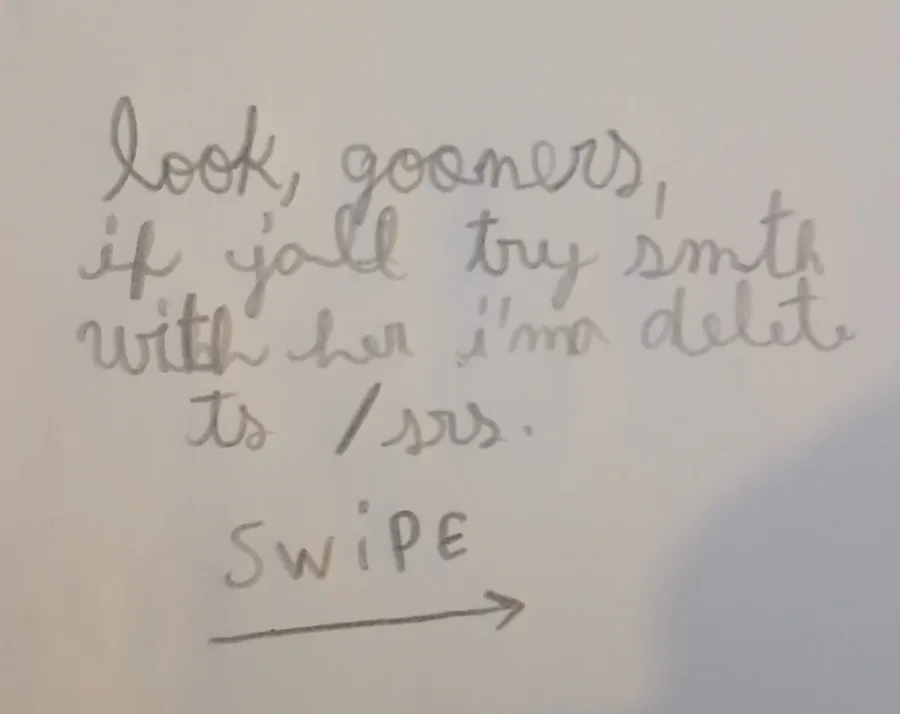 look, gooners,
if y'all try smth
with her i'ma delete
ts /srs.
SWiPE